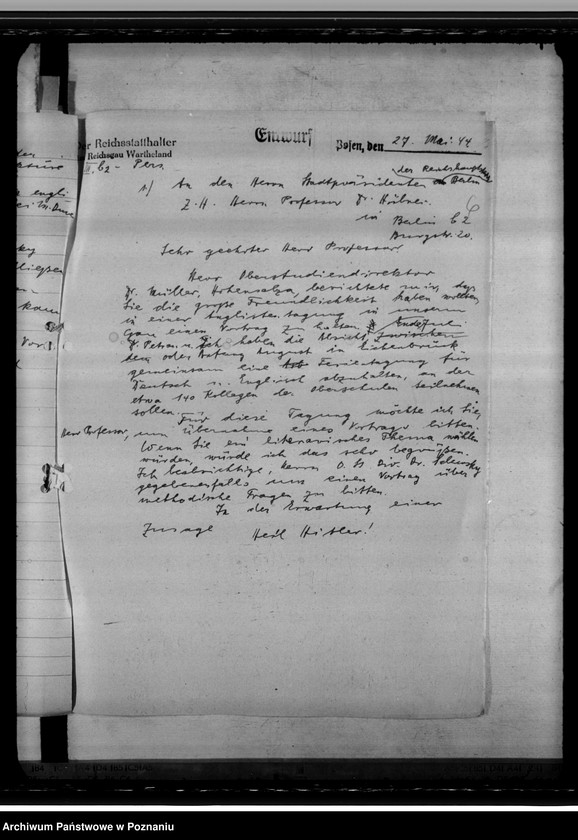 Der Reichsstatthalter
Reichsgau Wartheland
Entwurf
Posen, den 27. Mai 44
II. C2 - Pers.
der Reichshauptstadt
1) An den Herrn Stadtpräsidenten Berlin
Z. H. Herrn Professor Dr. Hübner
6
in Berlin C 2
Burgstr. 20.
Sehr geehrter Herr Professor
Herr Oberstudiendirektor
Dr. Müller, Hohensalza, berichtete mir, dass
Sie die große Freundlichkeit haben wollen
in einer Anglistentagung in unserm
Gau einen Vortrag zu halten. Ende Juli
Dr. Petran u. Ich haben die Absicht, zwischen
dem oder Anfang August in
gemeinsam eine Ferientagung für
Deutsch u. Englisch abzuhalten, an der
etwa 140 Kollegen der Oberschulen teilnehmen
sollen.
Für diese Tagung möchte ich Sie,
Herr Professor, um Übernahme eines Vortrags bitten.
Wenn Sie ein literarisches Thema wählen
würden, würde ich das sehr begrüßen.
Ich beabsichtige, Herrn O. St. Dir. Dr.
gegebenenfalls um einen Vortrag über
methodische Fragen zu bitten.
In der Erwartung einer
Zusage Heil Hitler!
Archiwum Państwowe w Poznaniu